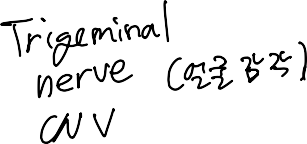 Trigeminal
nerve (얼굴 감각)
CN V